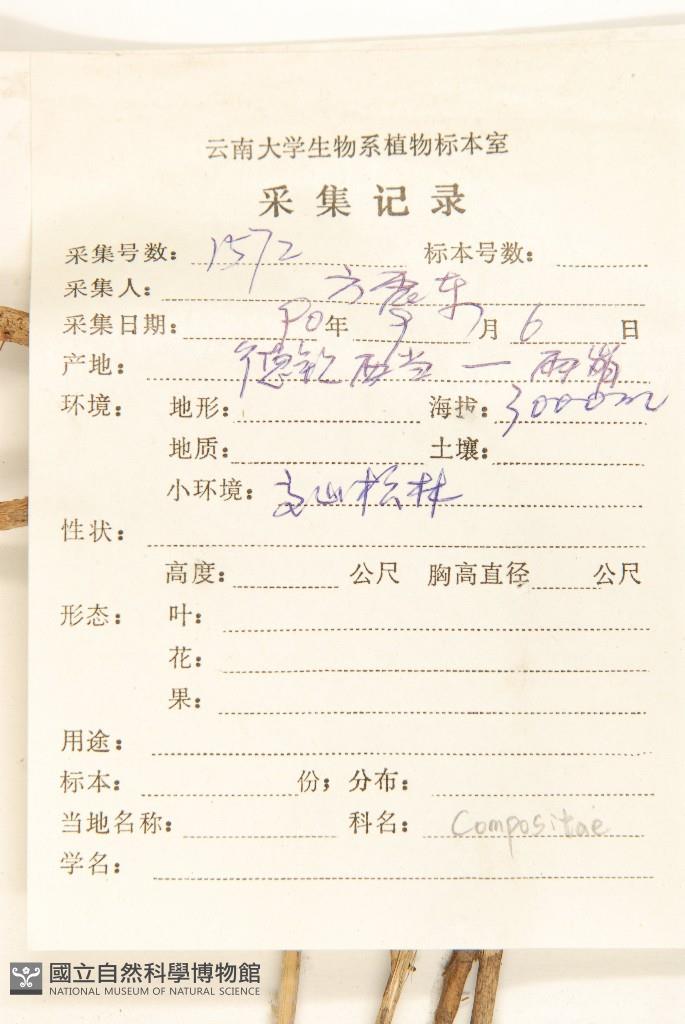 云南大学生物系植物标本室
采集记录
采集号数： 1572 标本号数：
采集人： 方震东
采集日期： 90年 9月 6日
产地： 德钦西当 — 雨崩
环境： 地形： 海拔： 3000m
地质： 土壤：
小环境： 高山松林
性状：
高度： 公尺 胸高直径 公尺
形态： 叶：
花：
果：
用途：
标本： 份； 分布：
当地名称： 科名： Compositae
学名：
國立自然科學博物館
NATIONAL MUSEUM OF NATURAL SCIENCE